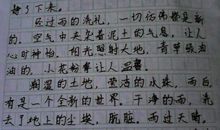 了下来。
经过雨的洗礼，一切仿佛都是新
的。空气中夹杂着泥土的气息，让人
心旷神怡。阳光照射大地，青草绿油
油的，人花粉让人
润湿的土地，莹洁的水珠，雨白
有是一个全新的世界，干净的雨，洗
去了地上的尘埃，肮脏，雨过天晴，